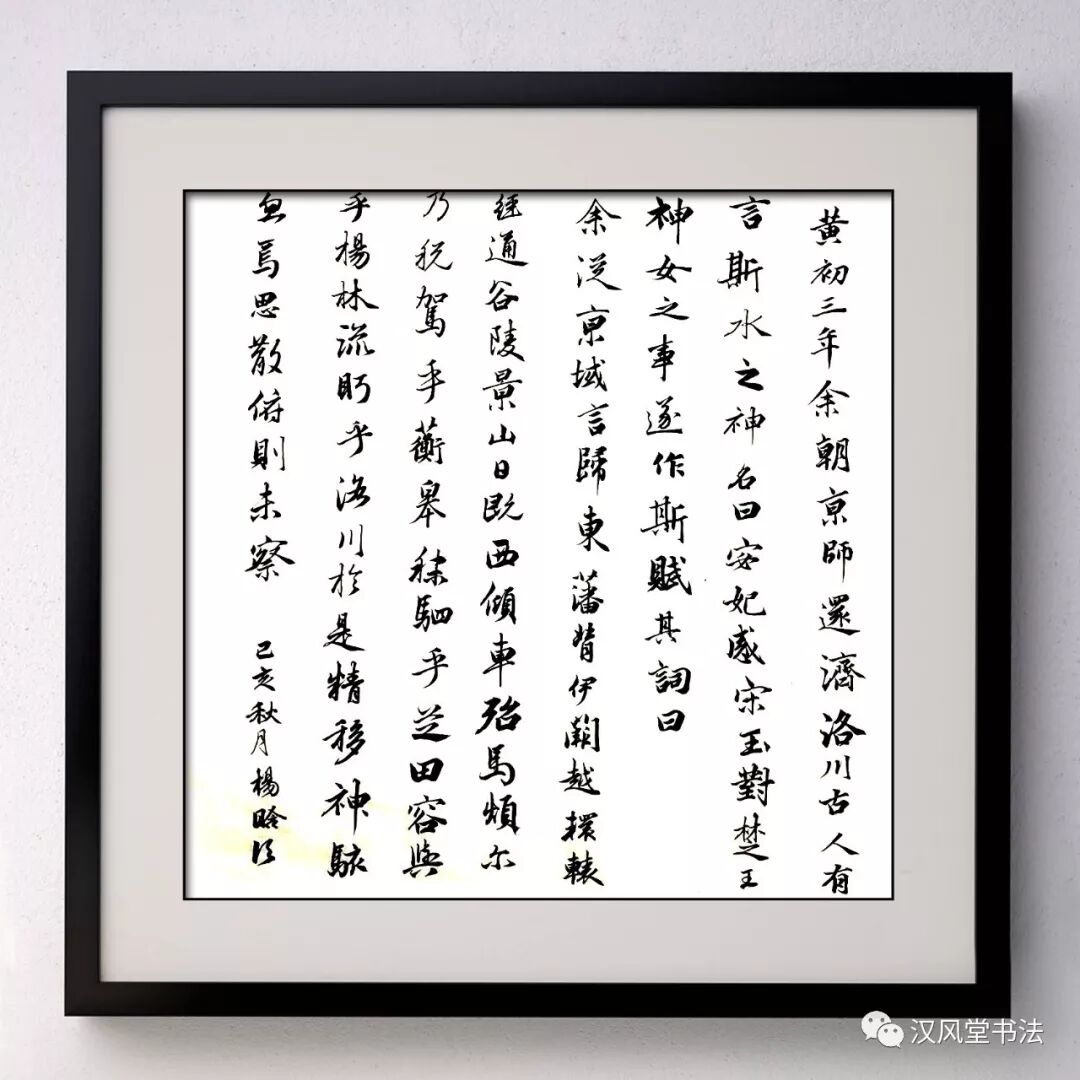 黄初三年余朝京師還濟洛川古人有
言斯水之神名曰宓妃感宋玉對楚王
神女之事遂作斯賦其詞曰
余從京域言歸東藩背伊闕越轘轅
經通谷陵景山日既西傾車殆馬煩尔
乃税駕乎蘅皋秣駟乎芝田容與
乎楊林流眄乎洛川於是精移神駭
忽焉思散俯則未察 己亥秋月楊晗
汉风堂书法